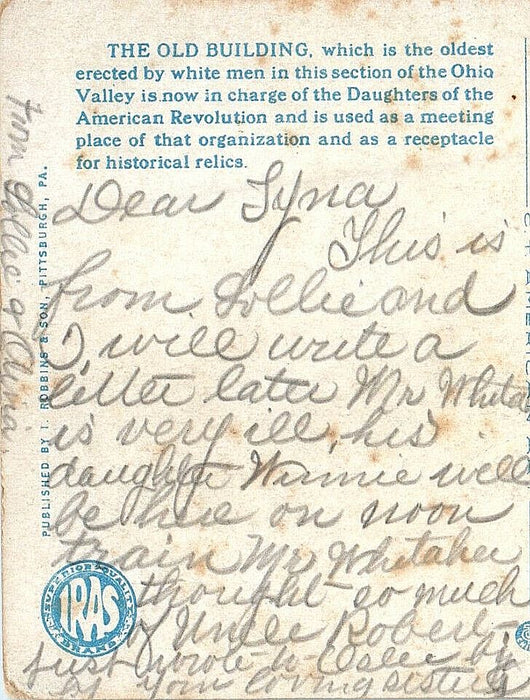 THE OLD BUILDING, which is the oldest
erected by white men in this section of the Ohio
Valley is now in charge of the Daughters of the
American Revolution and is used as a meeting
place of that organization and as a receptacle
for historical relics.
Dear Syna
This is
from Lollie and
I will write a
letter later Mr Whita
is very ill, his
daughter Winnie will
be here on noon
train Mr Whitaker
thought so much
of Uncle Robert
just wrote to
your loving sister
from Lollie &
PUBLISHED BY I. ROBBINS & SON, PITTSBURGH, PA.
SUPERIOR QUALITY
IRAS
BRAND